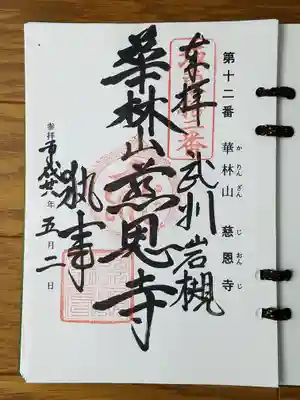 第十二番 華林山 慈恩寺
かりんざん じおんじ
奉拝 武州岩槻
華林山慈恩寺
執事
参拝 平成廿八年 五月二日